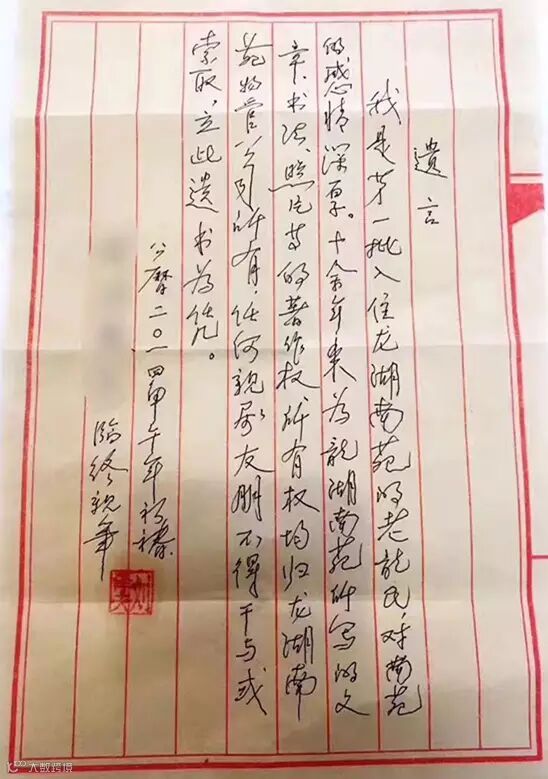 遺言
我是第一批入住龙湖南苑的老龍民，对南苑
的感情深厚。十余年来为龍湖南苑所写的文
章、书法、照片等的著作权所有权均归龙湖南
苑物管公司所有，任何親属友朋不得干与或
索取，立此遺书为凭。
公曆二〇一四甲午年初春
临终親筆
大数跨境